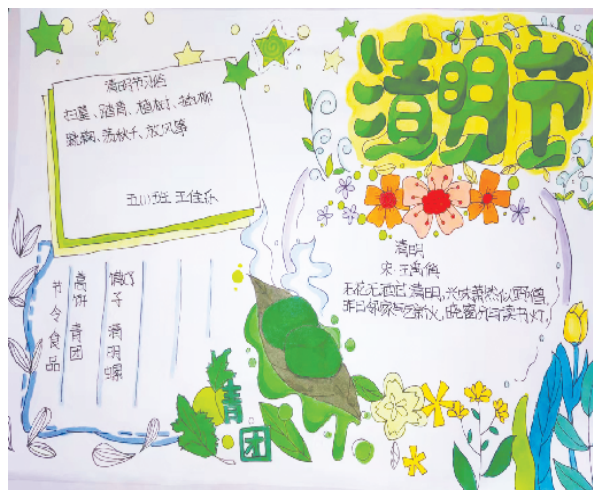 清明节
清明节习俗
扫墓、踏青、植树、插柳
蹴鞠、荡秋千、放风筝
五(1)班 王佳乐
清明
宋·王禹偁
无花无酒过清明,兴味萧然似野僧,
昨日邻家乞新火,晓窗分与读书灯。
节令食品
蒿饼 青团
馓子 清明螺
青团